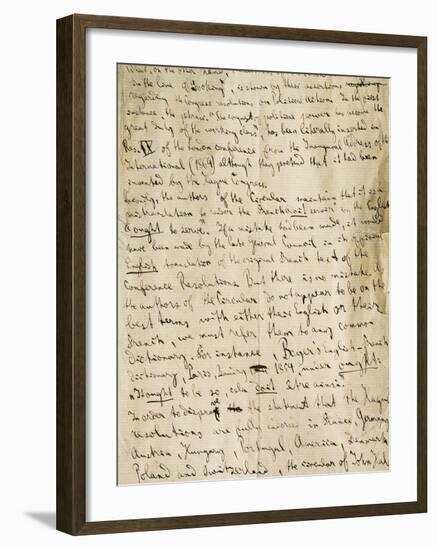 What, on the other hand,
"in the line of "cooking", is shown by their assertions
regarding the Congress resolutions on Political Action. In the first
instance, the phrase, "the conquest of political power has become the
great duty of the working class", has been literally inserted in
Res. IX of the London conference from the Inaugural Address of the
International (1864) although they pretend that it had been
invented by the Hague Congress.
Secondly, the authors of the Circular maintain that it is a
mistranslation to render the French doit servir by the English
ought to serve. If a mistake had been made, it would
have been made by the late General Council in its official
English translation of the original French text of the
Conference Resolutions. But there is no mistake. As
the authors of the Circular do not appear to be on the
best terms with either their English or their
French, we must refer them to any common
dictionary, for instance, Boyer's English-French
dictionary, Paris, 1854, under ought:
It ought to be so cela doit être ainsi.
In order to disprove the statement that the Hague
resolutions are fully indorsed in France, Germany
Austria, Hungary, Portugal, America, Denmark
Poland and Switzerland, the circular of John Hal